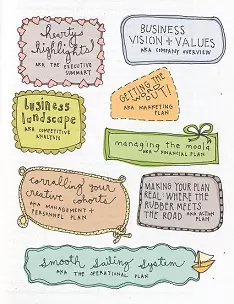 hearty
highlights
AKA THE EXECUTIVE
SUMMARY
BUSINESS
VISION + VALUES
AKA COMPANY OVERVIEW
GETTING THE
WORD OUT!
AKA MARKETING
PLAN
business
landscape
AKA COMPETITIVE
ANALYSIS
managing the moola
AKA FINANCIAL PLAN
corralling your
creative cohorts
AKA MANAGEMENT +
PERSONNEL PLAN
MAKING YOUR PLAN
REAL: WHERE THE
RUBBER MEETS
THE ROAD AKA ACTION
PLAN
Smooth Sailing System
AKA THE OPERATIONAL PLAN